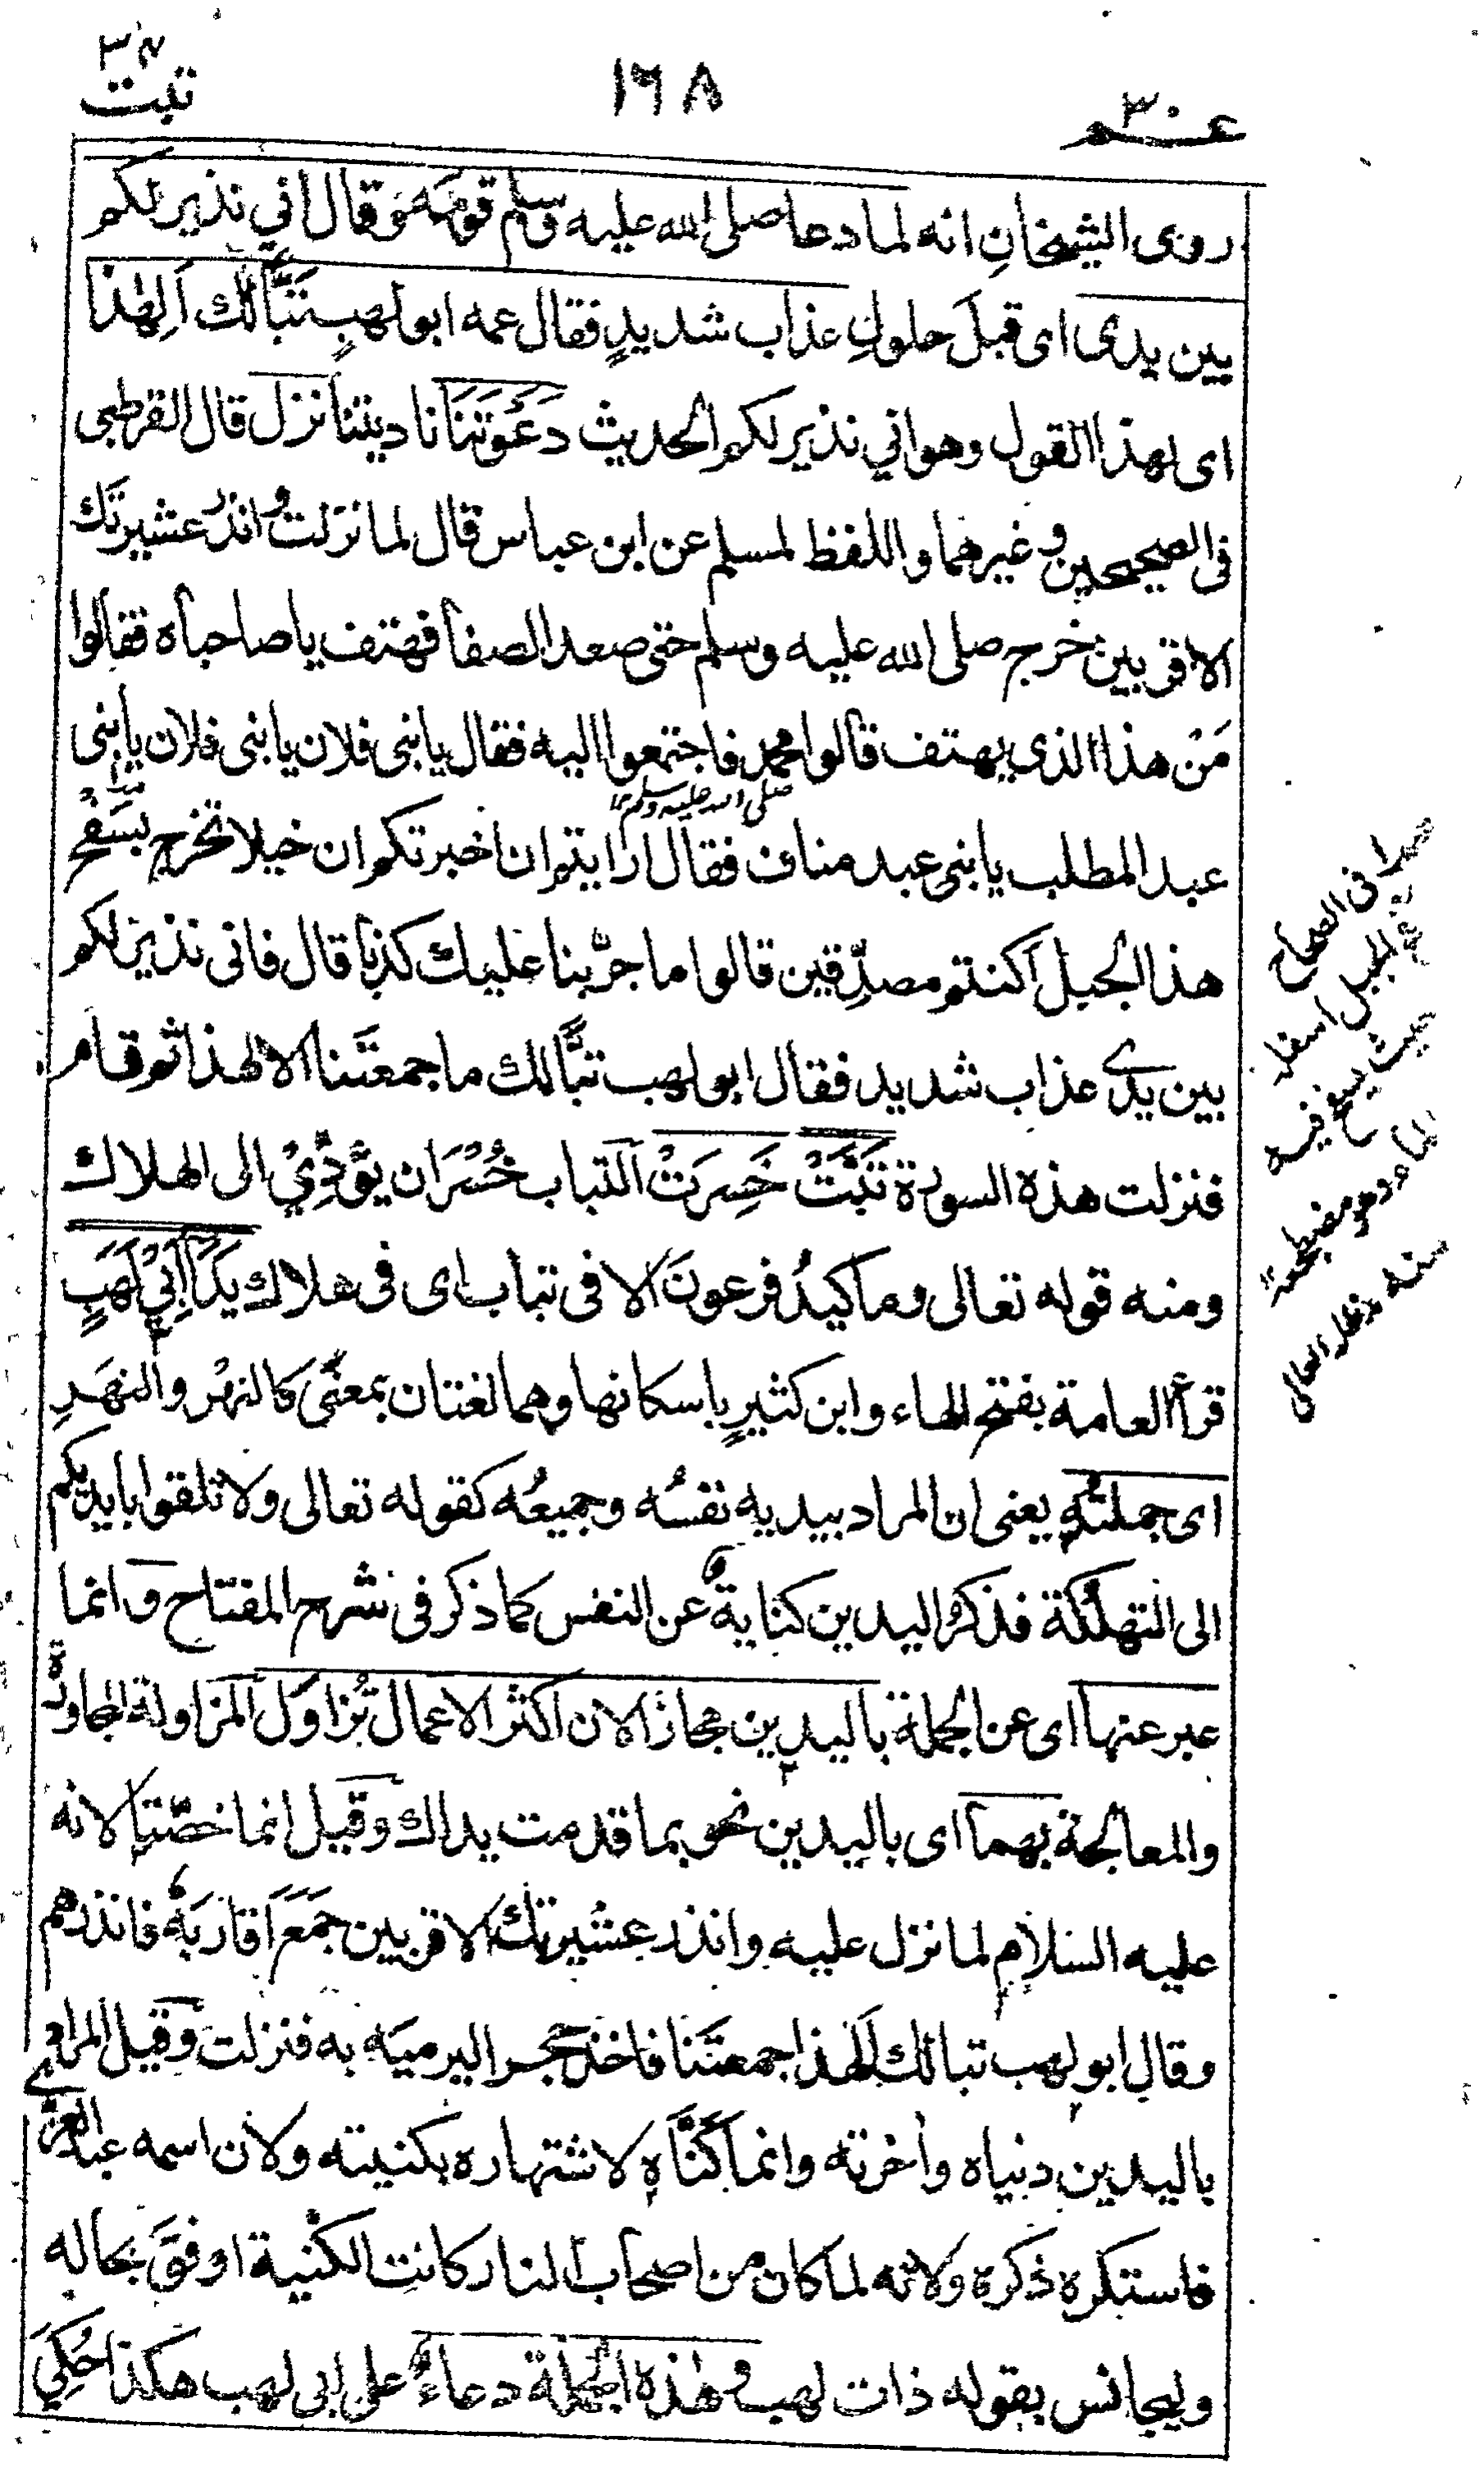 عـم ٣٠
١٦٨
تبت
روى الشيخانِ انه لما دعا صلى الله عليه وسلم قومَه وقال انى نذير لكم
بين يدى اى قبلَ حلولِ عذاب شديدٍ فقال عمه ابو لهبٍ تَبًّا لَك اَلِهٰذا
اى لهذا القول وهو انى نذير لكم الحديث دَعَوتَنَا ناديتنا نزل قال القرطبى
فى الصحيحين وغيرهما واللفظ لمسلم عن ابن عباس قال لما نزلت وانذر عشيرتك
الاقربين خرج صلى الله عليه وسلم حتى صعد الصفا فهتف يا صاحباه فقالوا
مَنْ هذا الذى يهتف قالوا محمد فاجتمعوا اليه فقال يا بنى فلان يا بنى فلان يا بنى
صلى الله عليه وسلم
عبد المطلب يا بنى عبد مناف فقال ارايتم ان اخبرتكم ان خيلا تخرج بسَفْح
هذا الجبل اكنتم مصدِّقين قالوا ما جرَّبنا عليك كذبا قال فانى نذير لكم
بين يدَى عذاب شديد فقال ابو لهب تبًّا لك ما جمعتَنا الا لهذا ثم قام
فنزلت هذه السورة تَبَّتْ خَسِرَتْ التباب خُسْرَان يؤدِّيْ الى الهلاك
ومنه قوله تعالى وما كيدُ فرعونَ الا فى تباب اى فى هلاك يَدَا اَبِيْ لَهَبٍ
قرأ العامة بفتح الهاء وابن كثيرٍ باسكانها وهما لغتان بمعنًى كالنهْر والنهَرِ
اى جملتُه يعنى ان المراد بيديه نفسُه وجميعُه كقوله تعالى ولا تلقوا بايديكم
الى التهلُكة فذكرُ اليدين كناية عن النفس كما ذكر فى شرح المفتاح وانما
عبر عنها اى عن الجملة باليدين مجازا لان اكثر الاعمال تُزَاوَل المزاولة المحاولة
والمعالجة بهما اى باليدين نحو بما قدمت يداك وقيل انما خصَّتا لانه
عليه السلام لما نزل عليه وانذر عشيرتك الاقربين جمَعَ اقاربَه فانذرهم
وقال ابو لهب تبا لك اَلِهذا جمعتَنا فاخذ حجرا ليرميَه به فنزلت وقيل المراد
باليدين دنياه واخرته وانما كَنَّاه لاشتهاره بكنيته ولان اسمه عبد العزّى
فاستكره ذكره ولانه لما كان من اصحاب النار كانت الكُنْية اوفقَ بحاله
وليجانس بقوله ذات لهب وهٰذه الجملة دعاءٌ على ابى لهب هكذا حُكِيَ
فى الصحاح
الجبل اسفله
حيث يسفح فيه
الماء وهو مضطجعه
منه